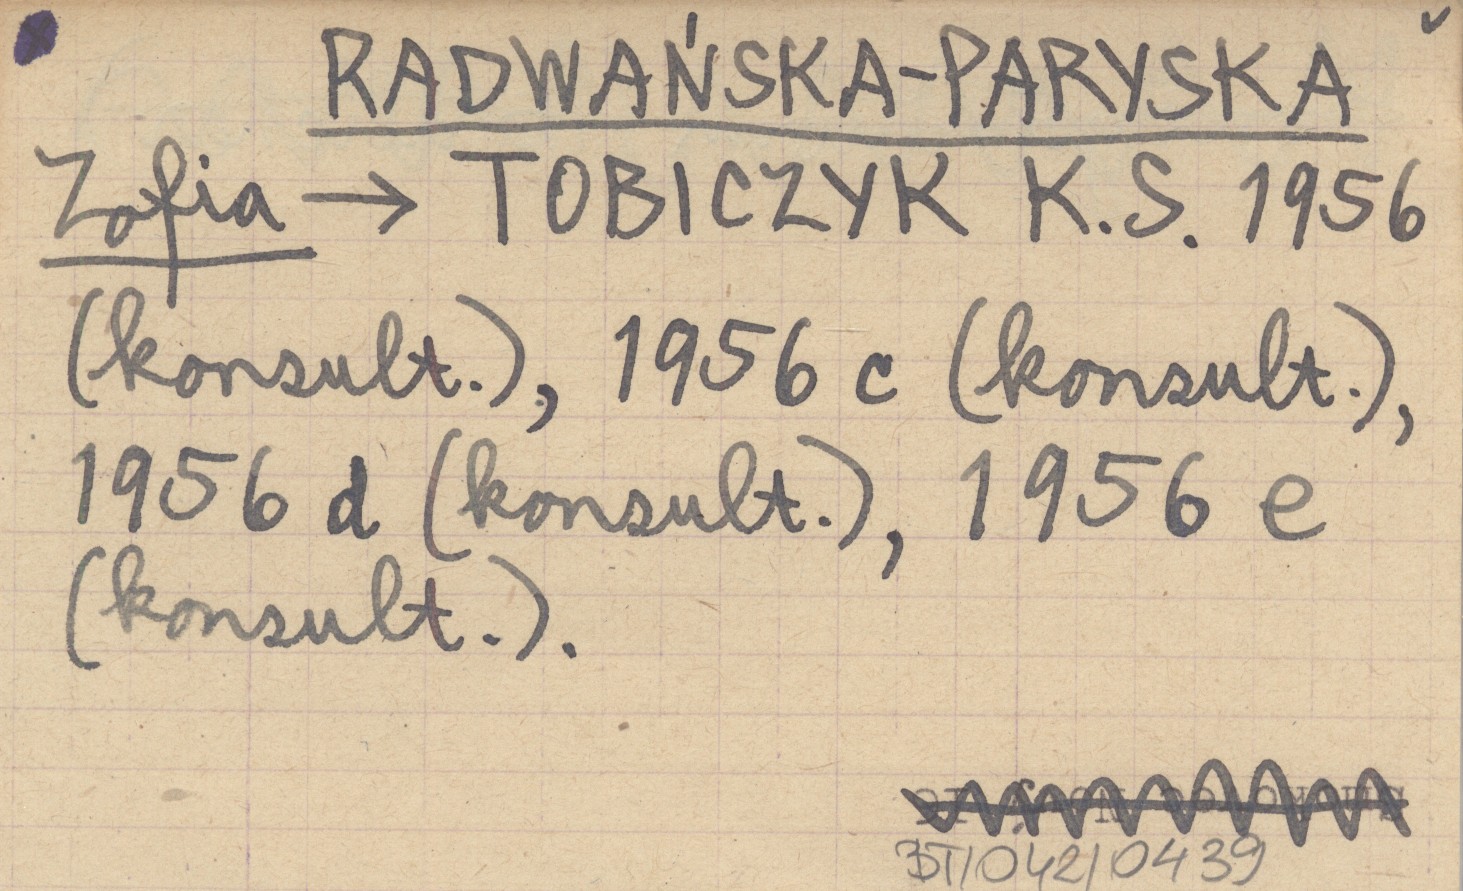 RADWAŃSKA-PARYSKA
Zofia → TOBICZYK K.S. 1956
(konsult.), 1956 c (konsult.),
1956 d (konsult.), 1956 e
(konsult.).
BT/042/0439